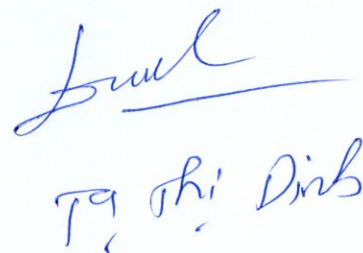 Tạ Thị Dinh